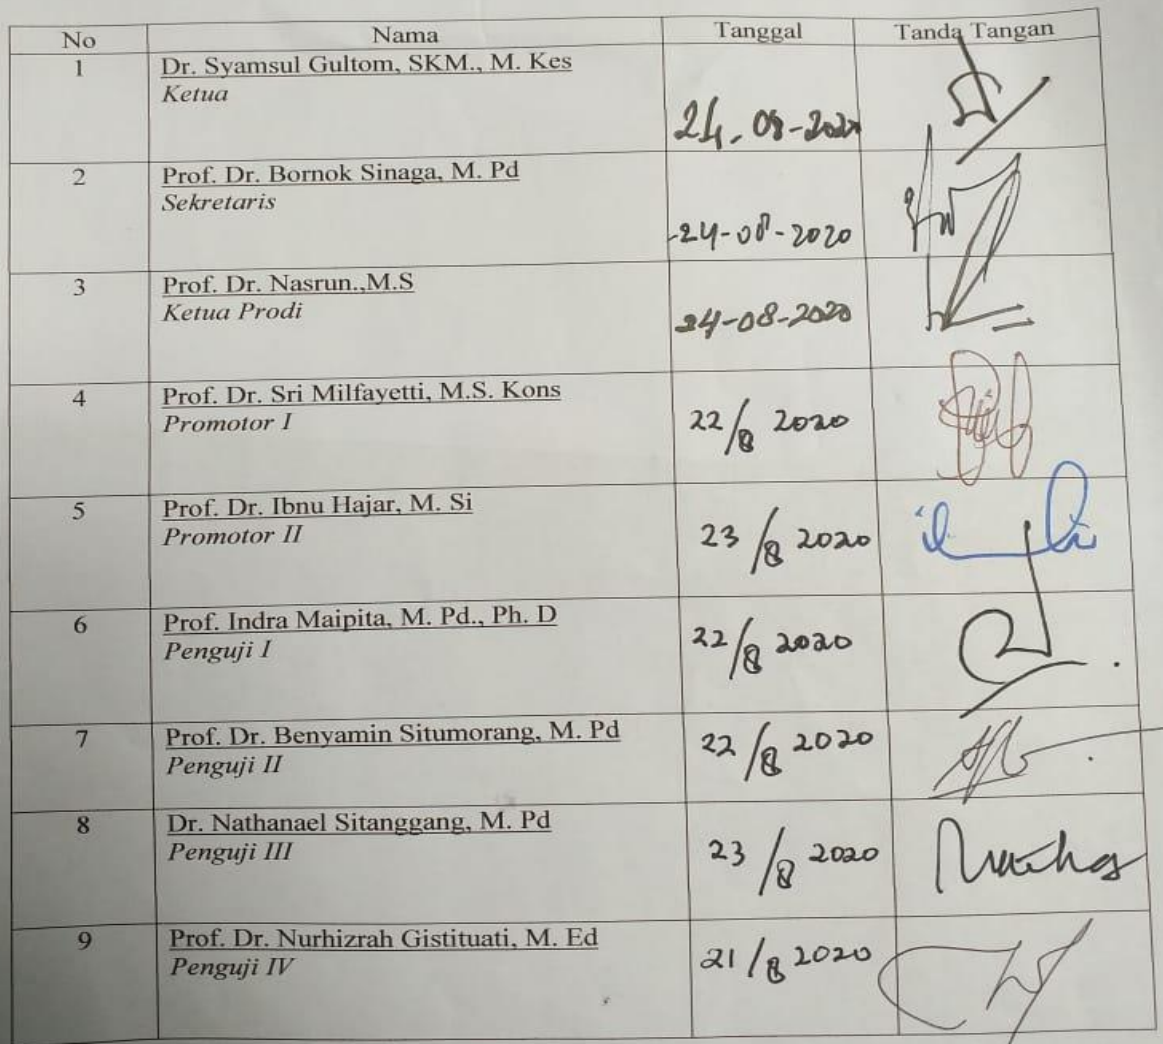 No Nama Tanggal Tanda Tangan
1 Dr. Syamsul Gultom, SKM., M. Kes
Ketua
24-08-2020
2 Prof. Dr. Bornok Sinaga, M. Pd
Sekretaris
24-08-2020
3 Prof. Dr. Nasrun.,M.S
Ketua Prodi
24-08-2020
4 Prof. Dr. Sri Milfayetti, M.S. Kons
Promotor I
22/8 2020
5 Prof. Dr. Ibnu Hajar, M. Si
Promotor II
23/8 2020
6 Prof. Indra Maipita, M. Pd., Ph. D
Penguji I
22/8 2020
7 Prof. Dr. Benyamin Situmorang, M. Pd
Penguji II
22/8 2020
8 Dr. Nathanael Sitanggang, M. Pd
Penguji III
23/8 2020
9 Prof. Dr. Nurhizrah Gistituati, M. Ed
Penguji IV
21/8 2020